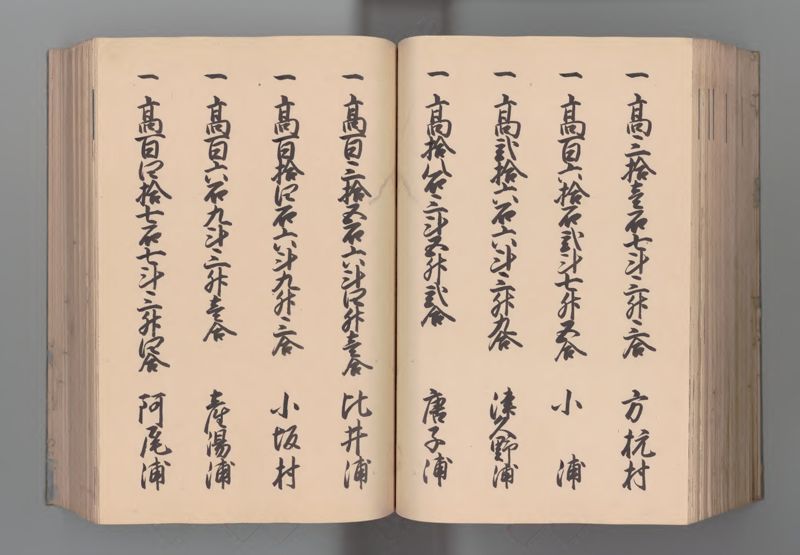 一 高三拾壱石七斗三升三合 方杭村
一 高百六拾石弐斗七升五合 小浦
一 高弐拾六石六斗三升九合 津久野浦
一 高拾八石三斗五升弐合 唐子浦
一 高百三拾五石六斗四升壱合 比井浦
一 高百拾四石六斗九升三合 小坂村
一 高百六石九斗三升壱合 産湯浦
一 高百四拾七石七斗三升四合 阿尾浦